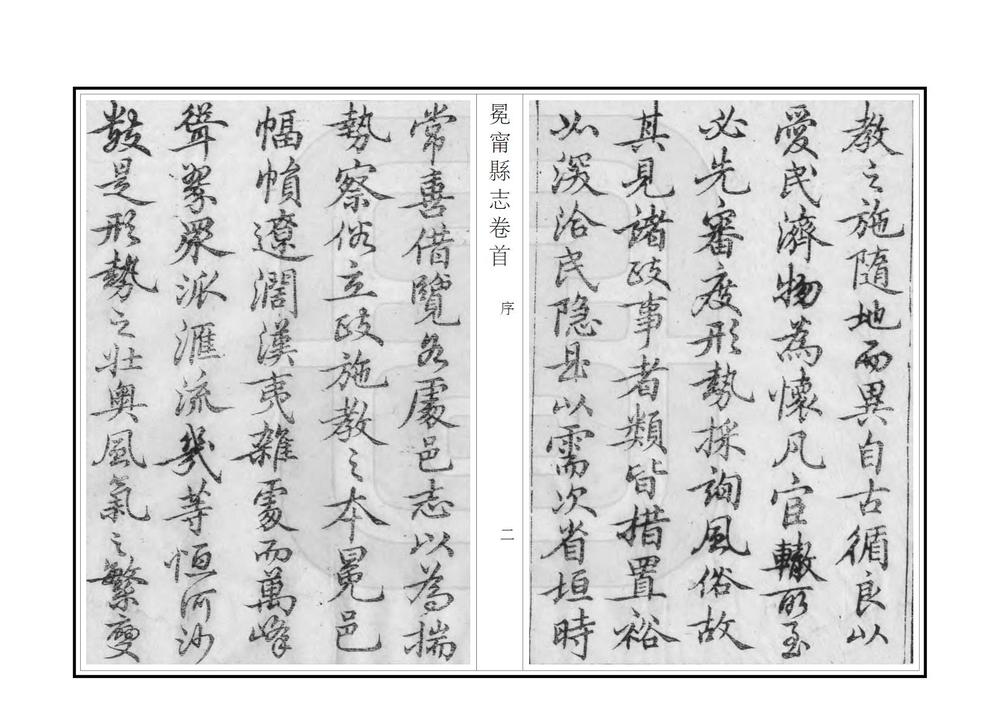 教之施隨地而異自古循良以
愛民濟物為懷凡官轍所至
必先審度形勢採詢風俗故
其見諸政事者類皆措置裕
如深洽民隱昷以需次省垣時
冕甯縣志卷首
序
二
常喜借覽各處邑志以為揣
勢察俗立政施教之本冕邑
幅幀遼濶漢夷雜處而萬峰
聳翠眾派滙流幾等恒河沙
數是形勢之壯輿風氣之繁變